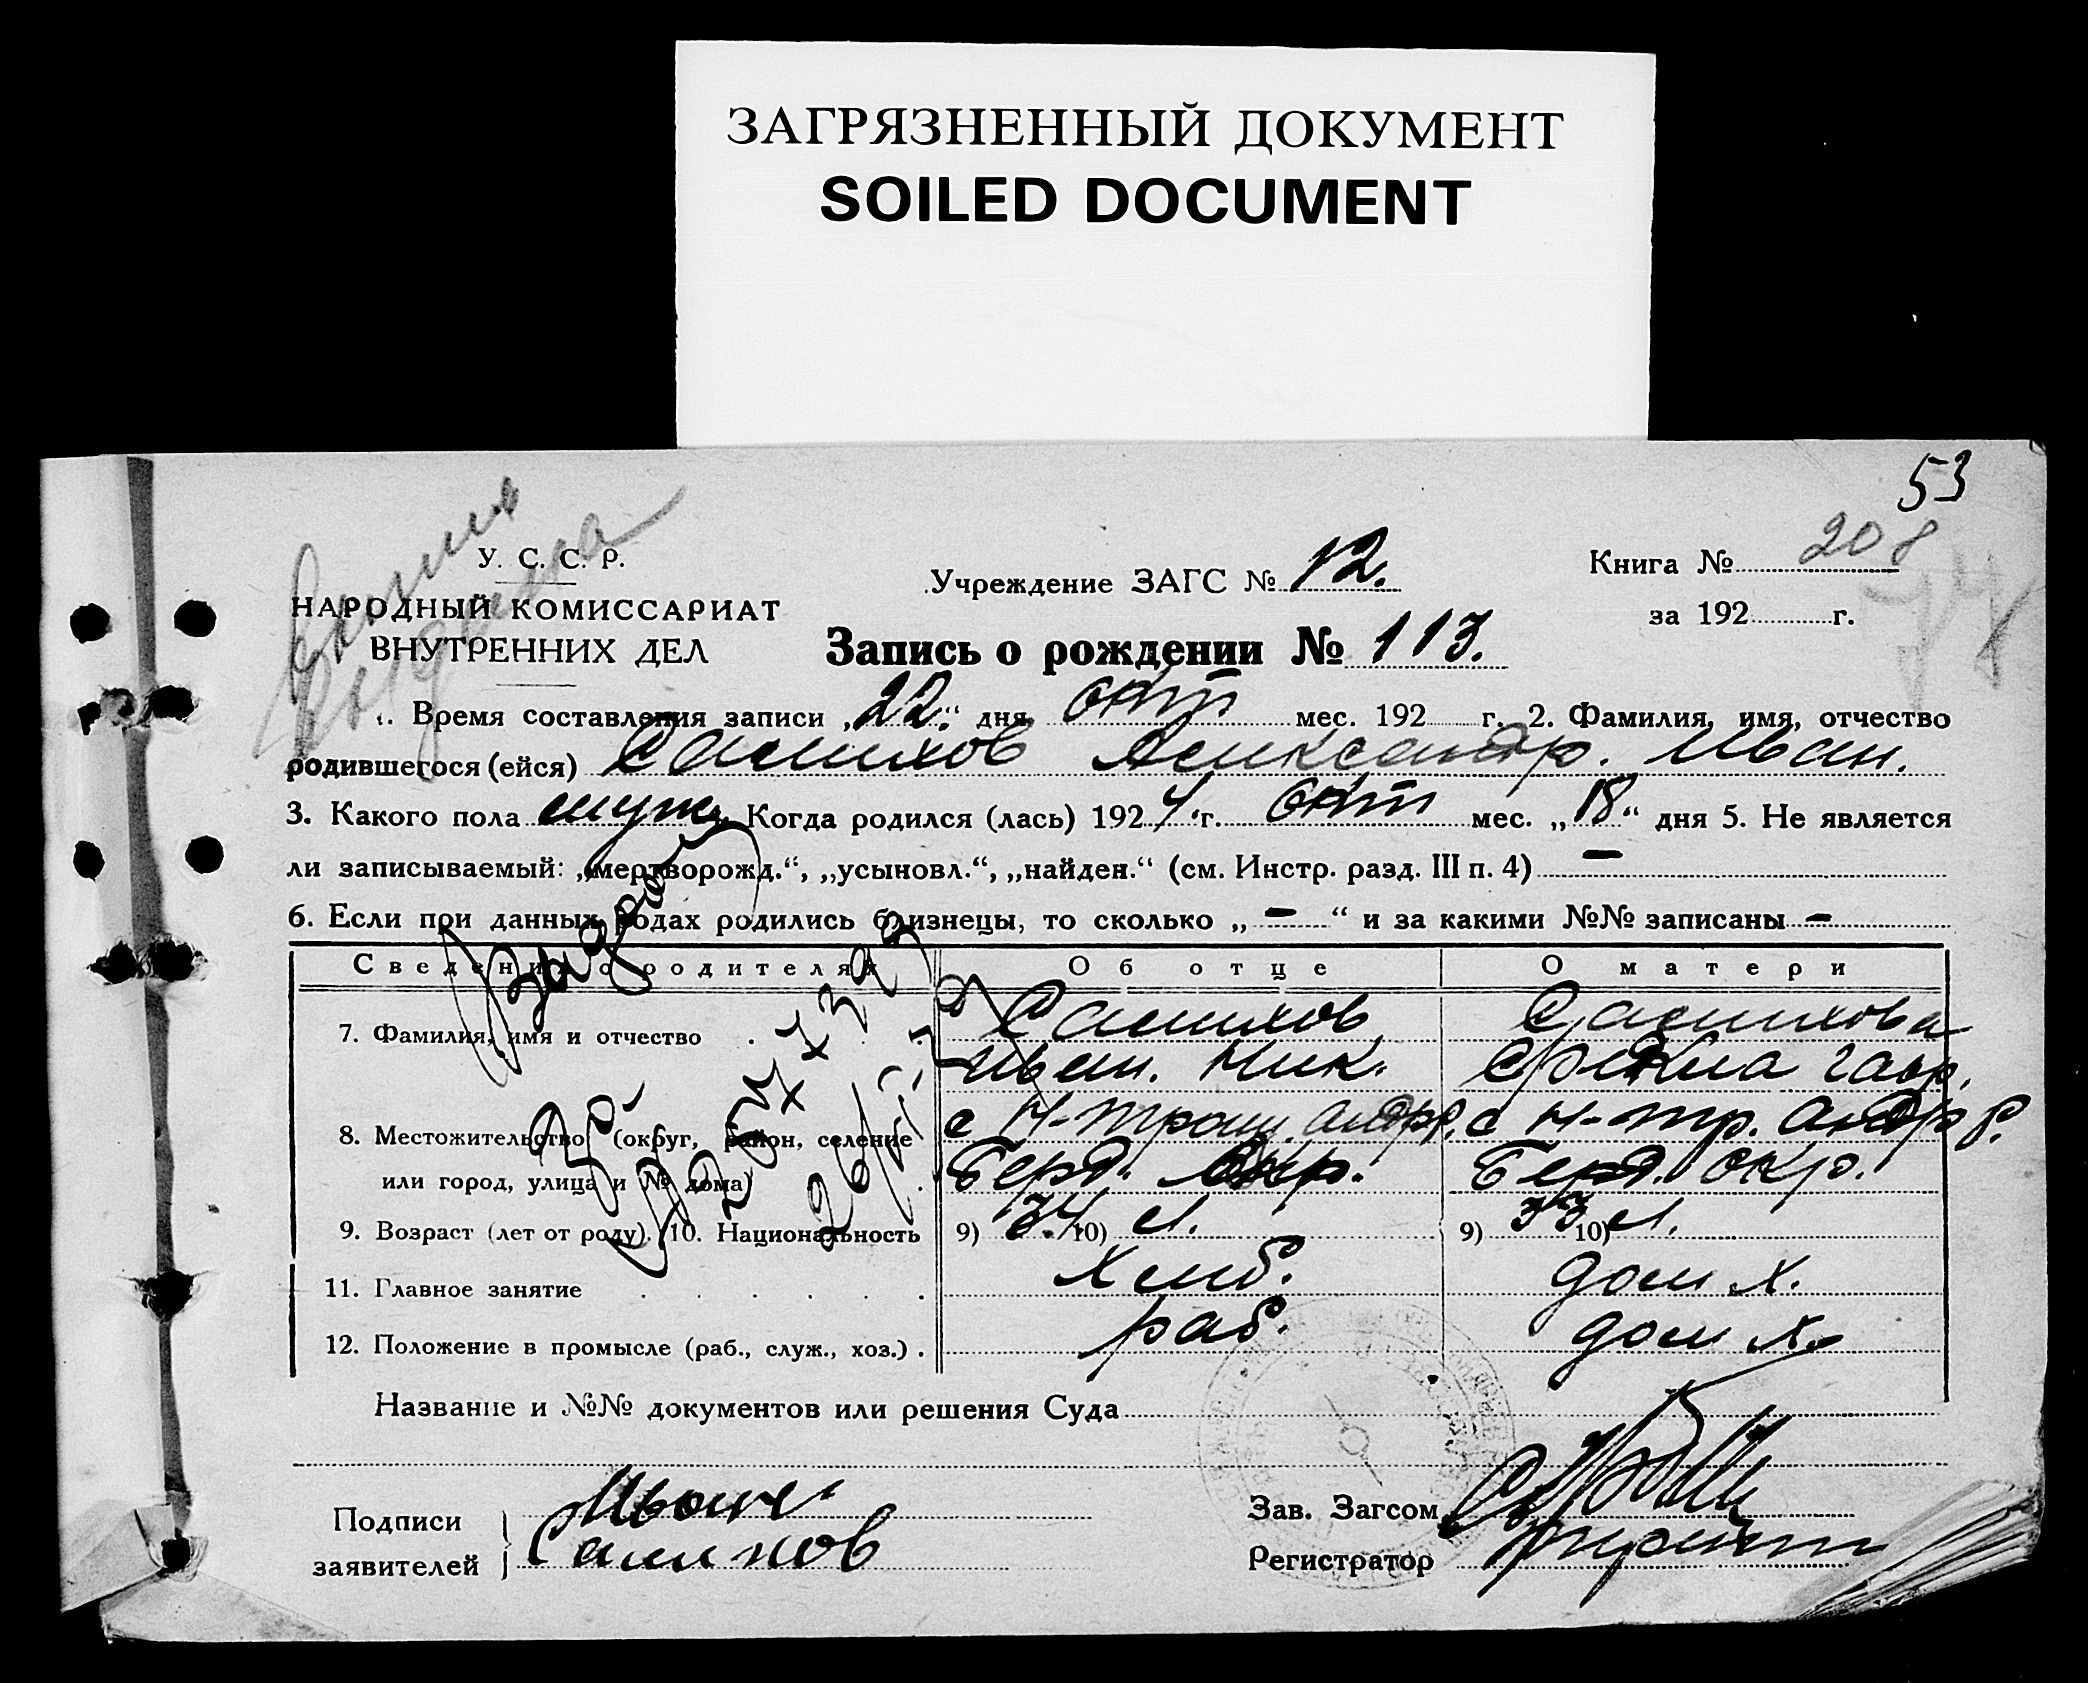 ЗАГРЯЗНЕННЫЙ ДОКУМЕНТ
SOILED DOCUMENT
53
У. С. С. Р.
НАРОДНЫЙ КОМИССАРИАТ
ВНУТРЕННИХ ДЕЛ
Учреждение ЗАГС № 12.
Книга № 208
за 192 г.
Запись о рождении № 113.
1. Время составления записи „22.“ дня окт мес. 192 г. 2. Фамилия, имя, отчество
родившегося (ейся) Салихов Александр. Иван.
3. Какого пола муж. Когда родился (лась) 1924 г. окт мес. „18“ дня 5. Не является
ли записываемый: „мертворожд.“, „усыновл.“, „найден.“ (см. Инстр. разд. III п. 4) –
6. Если при данных родах родились близнецы, то сколько „ – “ и за какими №№ записаны –
Сведения о родителях Об отце О матери
7. Фамилия, имя и отчество Салихов Салихова
Иван. Ник. гавр.
8. Местожительство (округ, район, селение с Н-Троиц. Андр. с Н-Тр. Андр р.
или город, улица и № дома) Берд. Окр. Берд. окр.
9. Возраст (лет от роду). 10. Национальность 9) 34 10) 9) 33 10)
11. Главное занятие Хлеб. дом х.
12. Положение в промысле (раб., служ., хоз.) раб. дом х.
Название и №№ документов или решения Суда
Подписи заявителей Иван
Салихов
Зав. Загсом
Регистратор